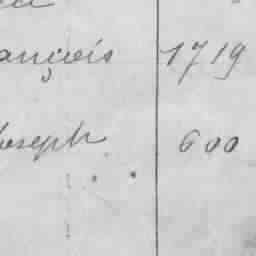 ançois 1719
Joseph 600